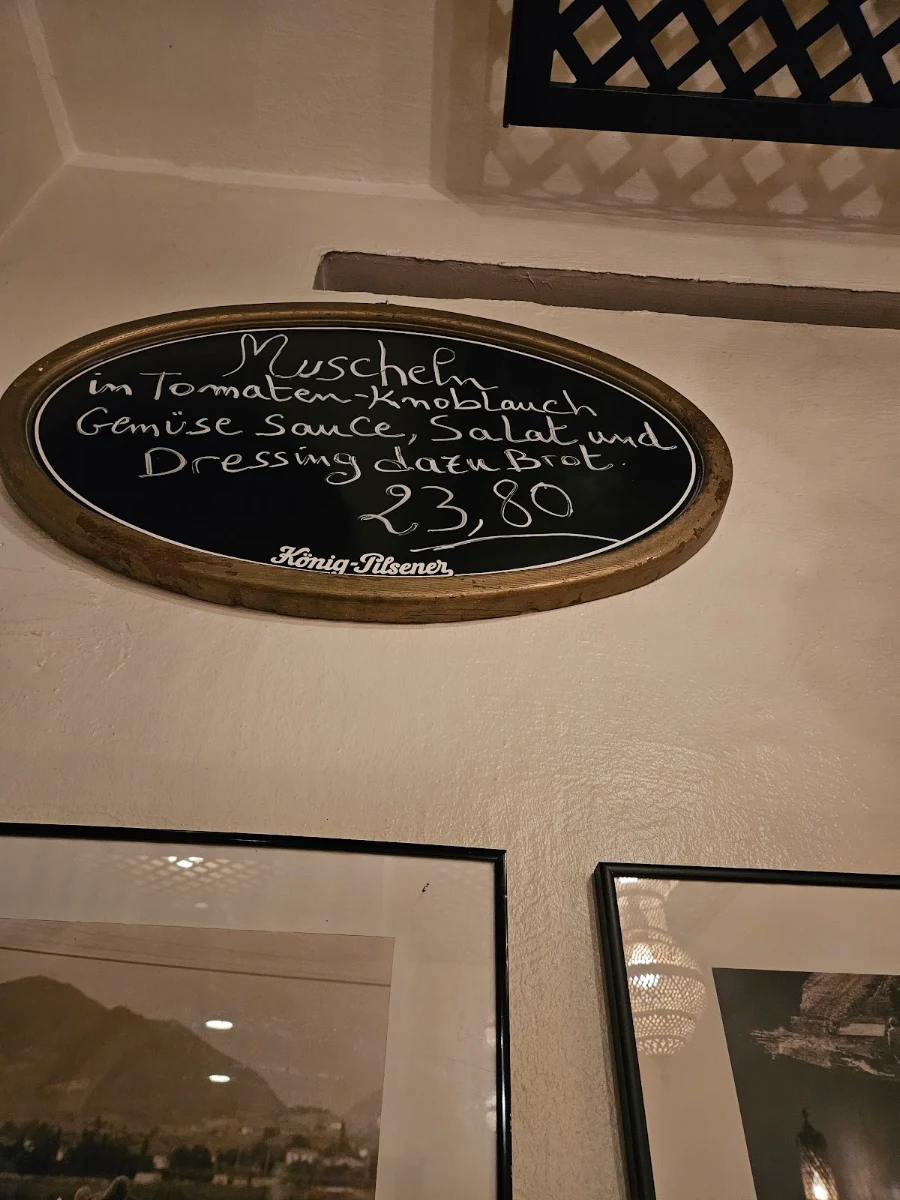 Muscheln
in Tomaten-Knoblauch
Gemüse Sauce, Salat und
Dressing dazu Brot.
23,80
König-Pilsener